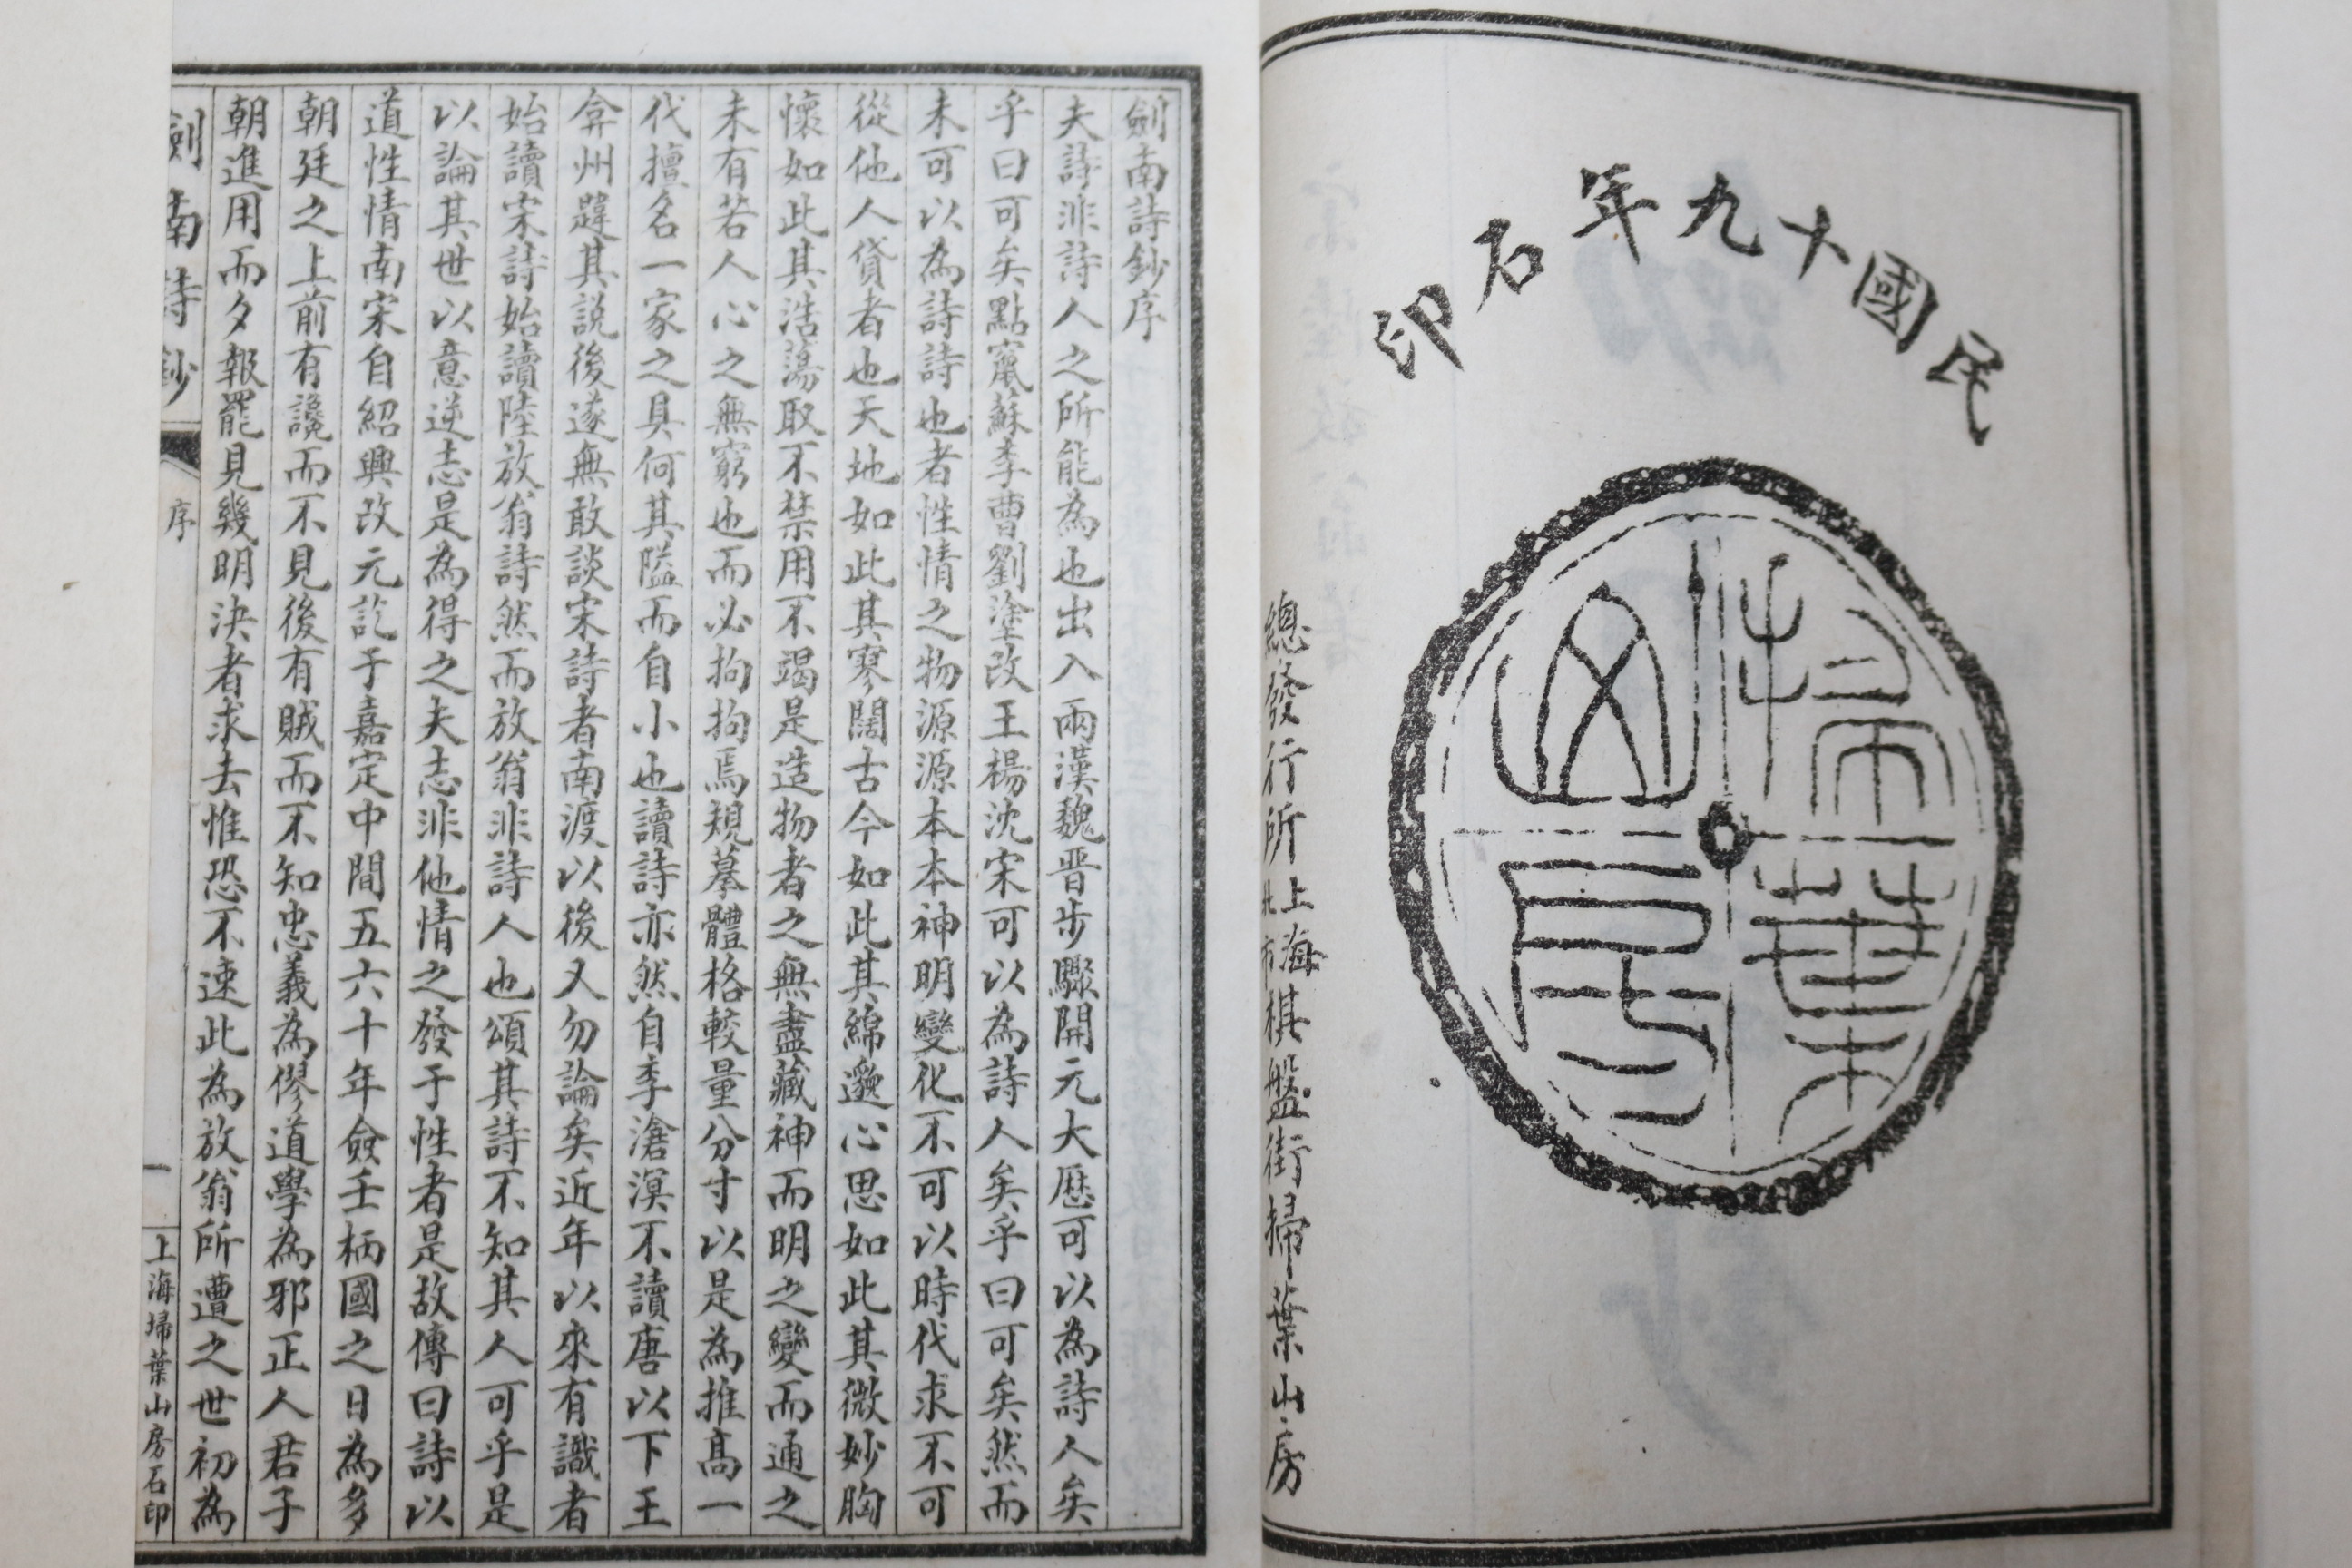 民國十九年石印
掃葉山房
總發行所上海北市棋盤街掃葉山房
劍南詩鈔序
夫詩非詩人之所能為也出入兩漢魏晉步驟開元大歷可以為詩人矣
乎曰可矣點竄蘇李曹劉塗改王楊沈宋可以為詩人矣乎曰可矣然而
未可以為詩詩也者性情之物源源本本神明變化不可以時代求不可
從他人貸者也天地如此其寥闊古今如此其綿邈心思如此其微妙胸
懷如此其浩蕩取不禁用不竭是造物者之無盡藏神而明之變而通之
未有若人心之無窮也而必拘拘焉規摹體格較量分寸以是為推高一
代擅名一家之具何其隘而自小也讀詩亦然自李滄溟不讀唐以下王
弇州韙其說後遂無敢談宋詩者南渡以後又勿論矣近年以來有識者
始讀宋詩始讀陸放翁詩然而放翁非詩人也頌其詩不知其人可乎是
以論其世以意逆志是為得之夫志非他情之發于性者是故傳曰詩以
道性情南宋自紹興改元訖于嘉定中間五六十年僉壬柄國之日為多
朝廷之上前有讒而不見後有賊而不知忠義為僇道學為邪正人君子
朝進用而夕報罷見幾明決者求去惟恐不速此為放翁所遭之世初為
劍南詩鈔
序
一
上海掃葉山房石印